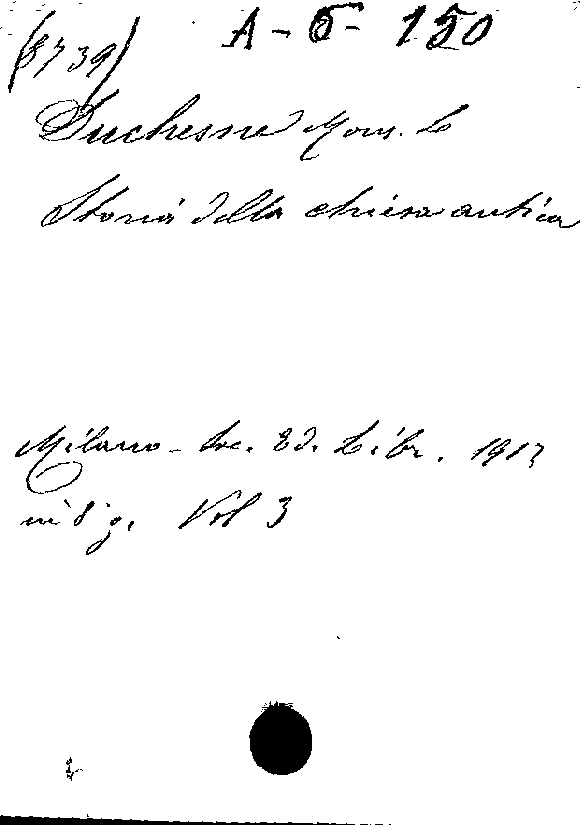 (8739) A-5-150
Duchesne Mons. L
Storia della chiesa antica
Milano - Soc. Ed. Libr. 1913
in 8° g. Vol 3